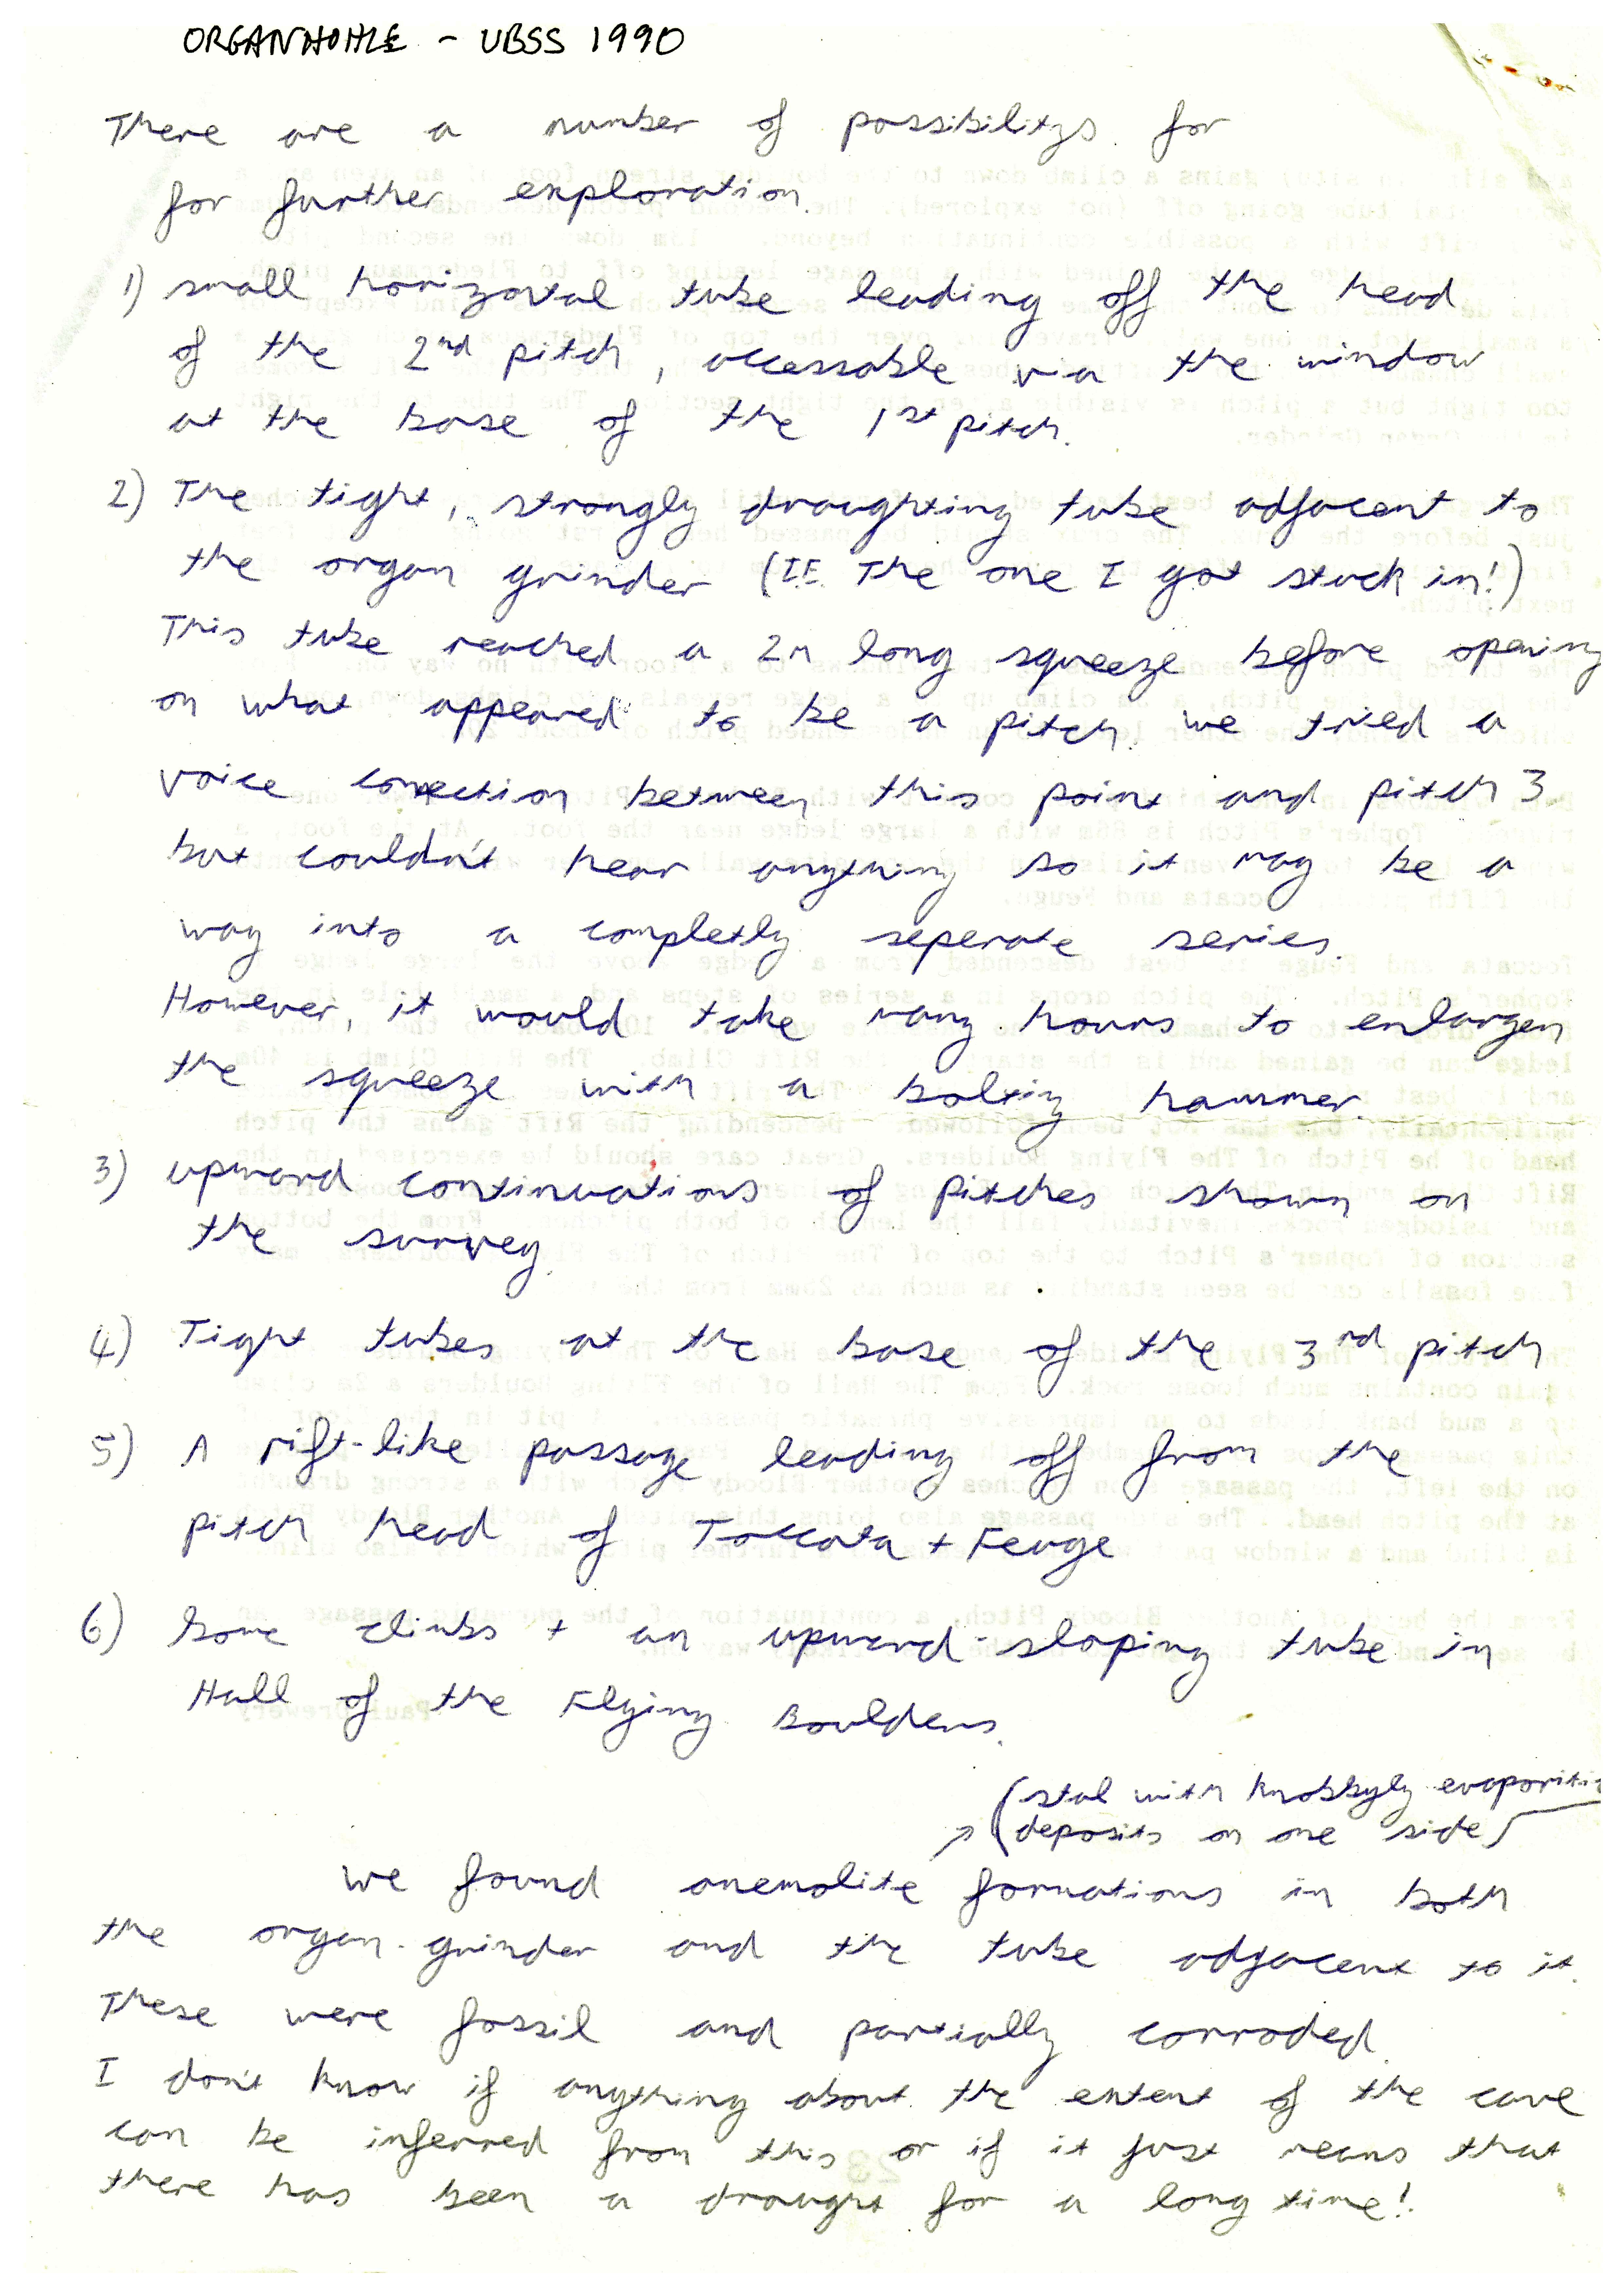 ORGANHOHLE - UBSS 1990
There are a number of possibilitys for
for further exploration.
1) small horizontal tube leading off the head
of the 2nd pitch, accessable via the window
at the base of the 1st pitch.
2) The tight, strongly draughting tube adjacent to
the organ grinder (IE. The one I got stuck in!)
This tube reached a 2m long squeeze before opening
on what appeared to be a pitch. we tried a
voice conection between this point and pitch 3.
but couldn't hear anything so it may be a
way into a completly seperate series.
However, it would take many hours to enlargen
the squeeze with a bolting hammer.
3) upward continuations of pitches shown on
the survey.
4) Tight tubes at the base of the 3rd pitch
5) A rift-like passage leading off from the
pitch head of Toccata + Feuge
6) Some climbs + an upward-sloping tube in
Hall of the Flying Boulders.
(stal with knobbyly
deposits on one side)
we found anemolite formations in both
the organ-grinder and the tube adjacent to it.
These were fossil and partially corroded.
I don't know if anything about the extent of the cave
can be inferred from this or if it just means that
there has been a draught for a long time!